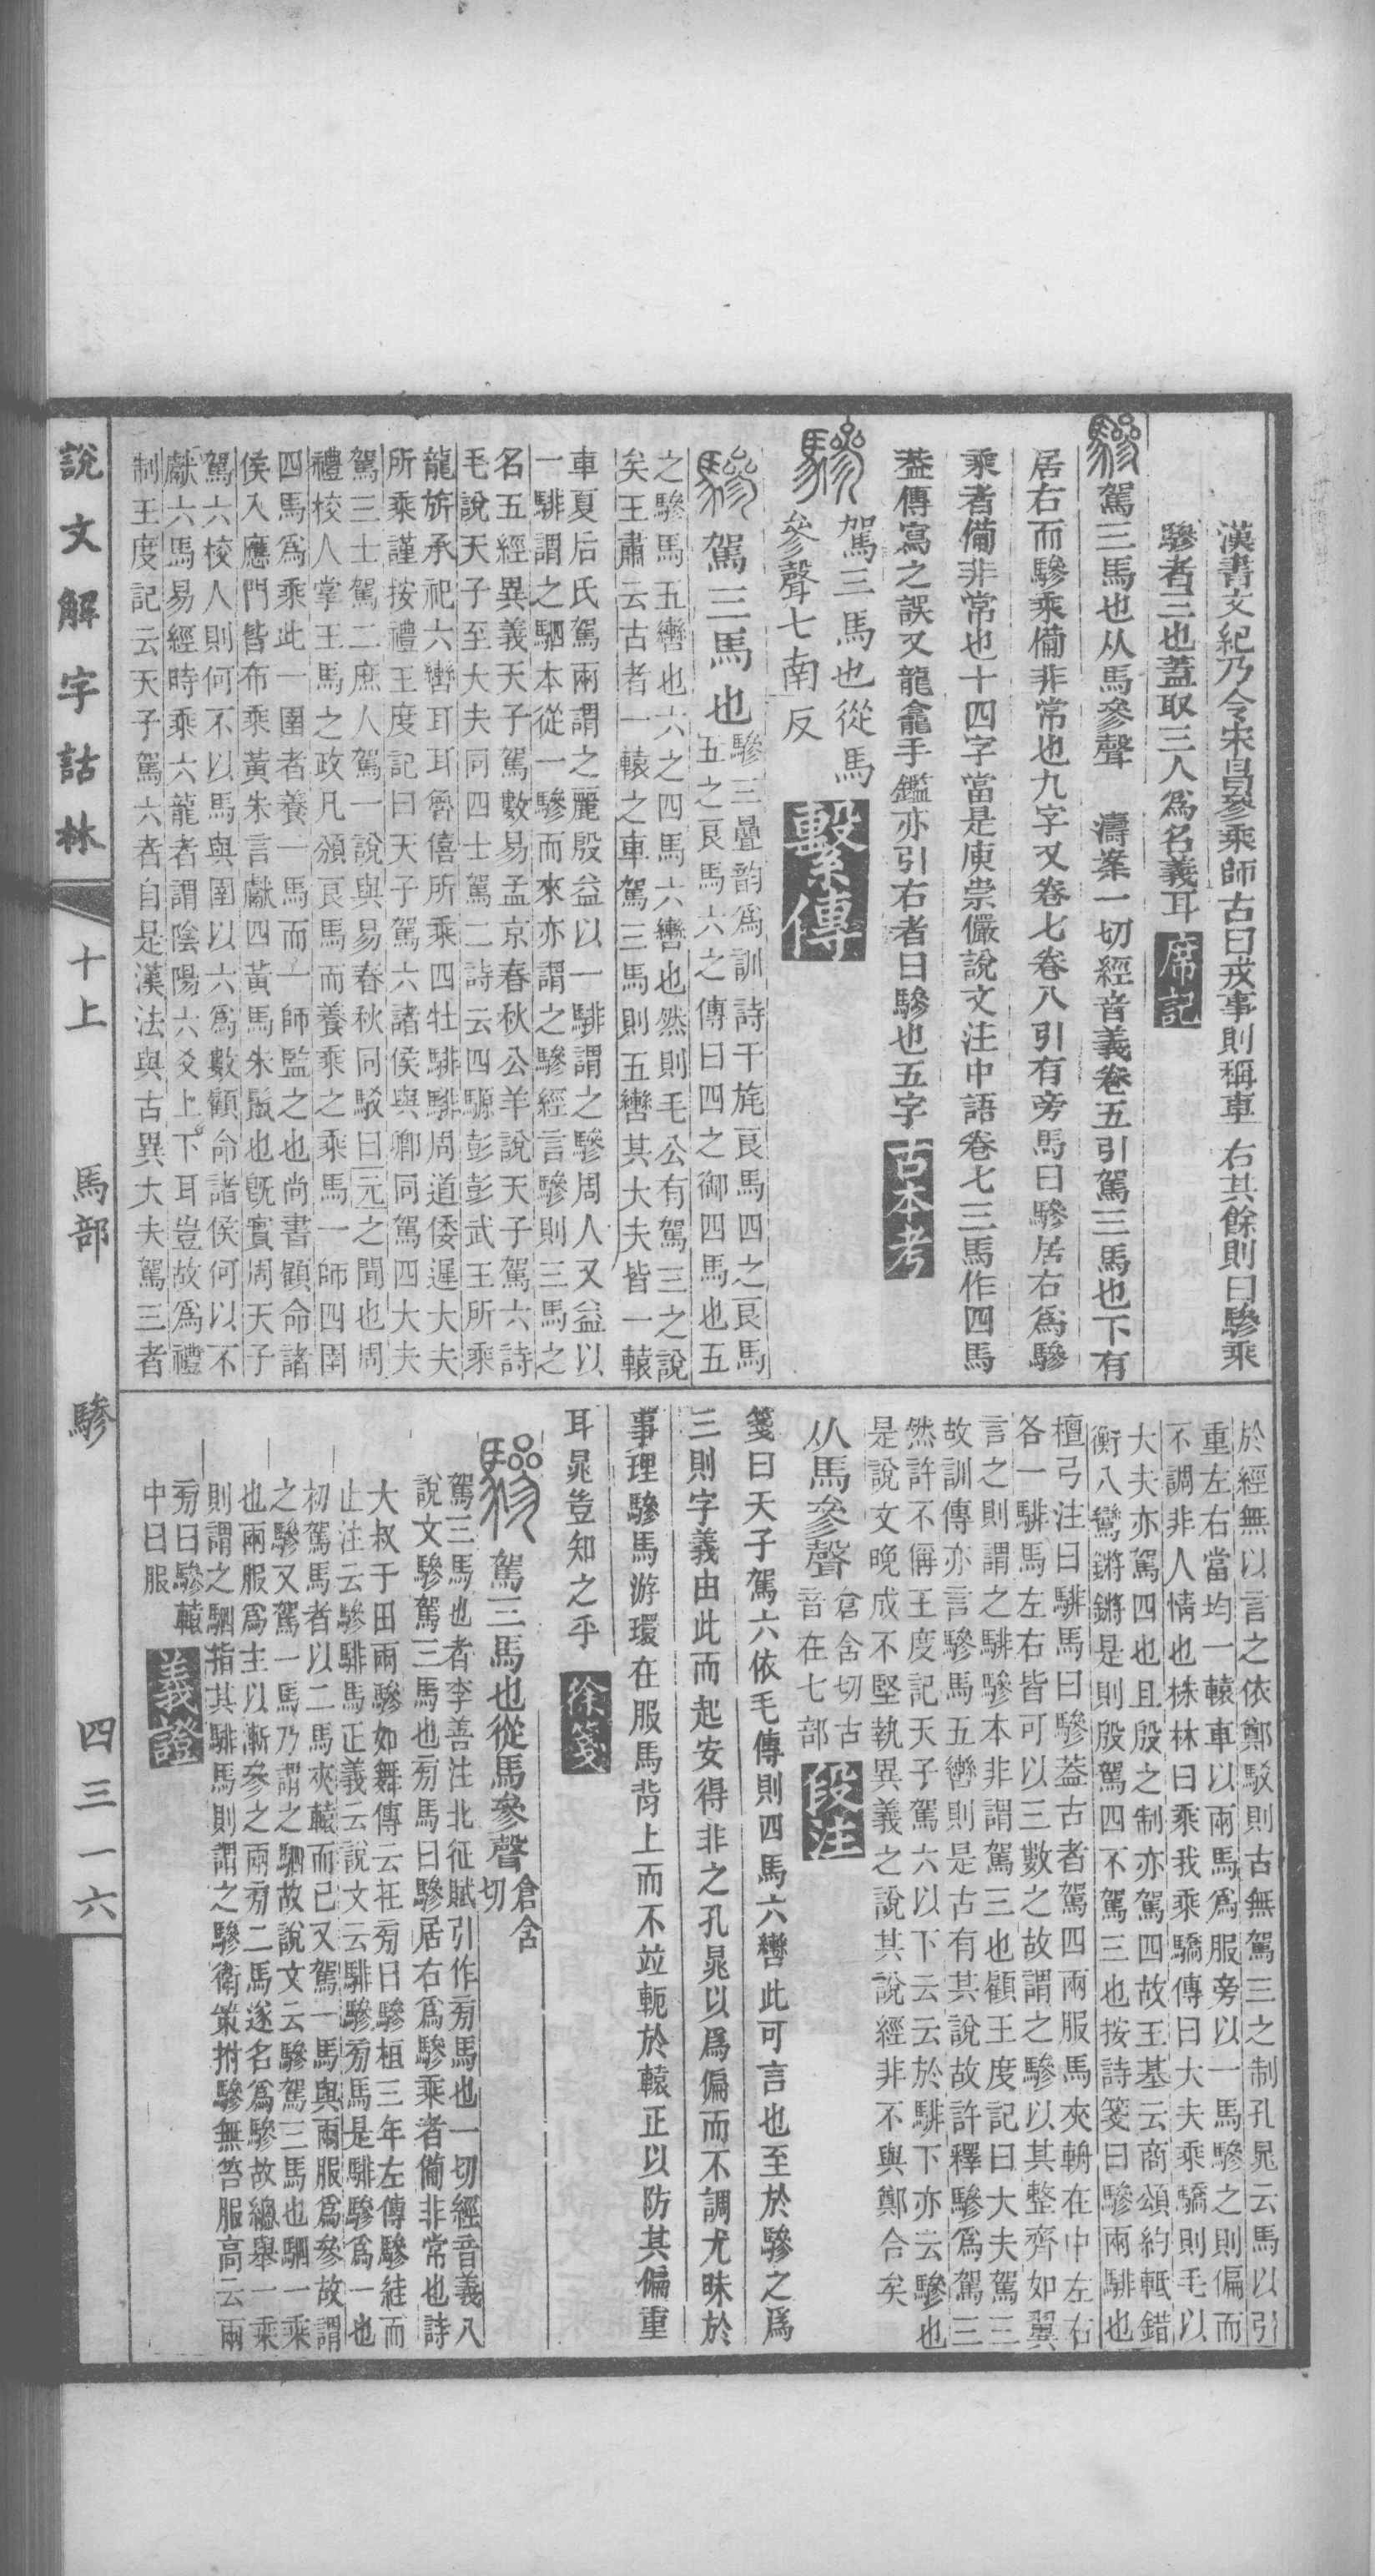 漢書文紀乃令宋昌驂乘師古曰戎事則稱車右其餘則曰驂乘
驂者三也蓋取三人爲名義耳 席記
驂 駕三馬也从馬參聲 濤案一切經音義卷五引駕三馬也下有
居右而驂乘備非常也九字又卷七卷八引有旁馬曰驂居右爲驂
乘者備非常也十四字當是庾崇儼說文注中語卷七三馬作四馬
葢傳寫之誤又龍龕手鑑亦引右者曰驂也五字 古本考
驂 駕三馬也從馬
參聲七南反 繫傳
驂 駕三馬也
驂三疊韵爲訓詩干旄良馬四之良馬
五之良馬六之傳曰四之御四馬也五
之驂馬五轡也六之四馬六轡也然則毛公有駕三之說
矣王肅云古者一轅之車駕三馬則五轡其大夫皆一轅
車夏后氏駕兩謂之麗殷益以一騑謂之驂周人又益以
一騑謂之駟本從一驂而來亦謂之驂經言驂則三馬之
名五經異義天子駕數易孟京春秋公羊說天子駕六詩
毛說天子至大夫同四士駕二詩云四騵彭彭武王所乘
龍旂承祀六轡耳耳魯僖所乘四牡騑騑周道倭遲大夫
所乘謹按禮王度記曰天子駕六諸侯與卿同駕四大夫
駕三士駕二庶人駕一說與易春秋同駁曰元之聞也周
禮校人掌王馬之政凡頒良馬而養乘之乘馬一師四圉
四馬爲乘此一圉者養一馬而一師監之也尚書顧命諸
侯入應門皆布乘黃朱言獻四黃馬朱鬣也旣實周天子
駕六校人則何不以馬與圉以六爲數顧命諸侯何以不
獻六馬易經時乘六龍者謂陰陽六爻上下耳豈故爲禮
制王度記云天子駕六者自是漢法與古異大夫駕三者
於經無以言之依鄭駁則古無駕三之制孔晁云馬以引
重左右當均一轅車以兩馬爲服旁以一馬驂之則偏而
不調非人情也株林曰乘我乘驕傳曰大夫乘驕則毛以
大夫亦駕四也且殷之制亦駕四故王基云商頌約軧錯
衡八鸞鏘鏘是則殷駕四不駕三也按詩箋曰驂兩騑也
檀弓注曰騑馬曰驂葢古者駕四兩服馬夾輈在中左右
各一騑馬左右皆可以三數之故謂之驂以其整齊如翼
言之則謂之騑驂本非謂駕三也顧王度記曰大夫駕三
故訓傳亦言驂馬五轡則是古有其說故許釋驂爲駕三
然許不偁王度記天子駕六以下云云於騑下亦云驂也
是說文晚成不堅執異義之說其說經非不與鄭合矣
从馬參聲
倉含切古
音在七部 段注
箋曰天子駕六依毛傳則四馬六轡此可言也至於驂之爲
三則字義由此而起安得非之孔晁以爲偏而不調尤昧於
事理驂馬游環在服馬背上而不竝軛於轅正以防其偏重
耳晁豈知之乎 徐箋
驂 駕三馬也從馬參聲
倉含
切
駕三馬也者李善注北征賦引作㫄馬也一切經音義八
說文驂駕三馬也㫄馬曰驂居右爲驂乘者備非常也詩
大叔于田兩驂如舞傳云在㫄曰驂桓三年左傳驂絓而
止注云驂騑馬正義云說文云騑驂㫄馬是騑驂爲一也
初駕馬者以二馬夾轅而已又駕一馬與兩服爲參故謂
之驂又駕一馬乃謂之駟故說文云驂駕三馬也駟一乘
也兩服爲主以漸參之兩㫄二馬遂名爲驂故總舉一乘
則謂之駟指其騑馬則謂之驂衛策拊驂無笞服高云兩
㫄曰驂轅
中曰服 義證
說文解字詁林 十上 馬部 驂 四三一六